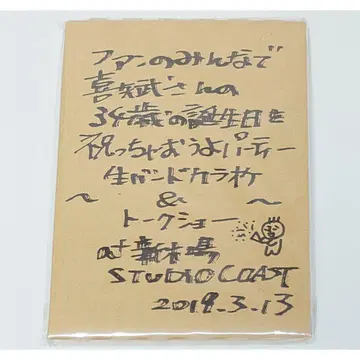 ファンのみんなで
喜矢武さんの
34歳の誕生日を
祝っちゃおうよパーティー
生バンドカラオケ
～ & ～
トークショー
at 新木場
STUDIO COAST
2019.3.13